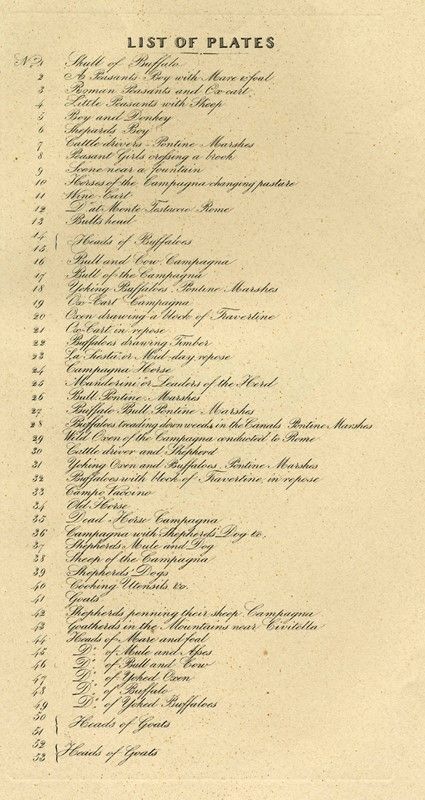 LIST OF PLATES
No. 1 Skull of Buffalo
2 A Peasants Boy with Mare & foal
3 Roman Peasants and Ox cart
4 Little Peasants with Sheep
5 Boy and Donkey
6 Shepards Boy
7 Cattle drivers Pontine Marshes
8 Peasant Girls crossing a brook
9 Scene near a fountain
10 Horses of the Campagna changing pasture
11 Wine Cart
12 Do. at Monte Testaccio Rome
13 Bulls head
14
15 Heads of Buffaloes
16 Bull and Cow Campagna
17 Bull of the Campagna
18 Yoking Buffaloes Pontine Marshes
19 Ox-Cart Campagna
20 Oxen drawing a block of Travertine
21 Ox Cart in repose
22 Buffaloes drawing Timber
23 La Siesta or Mid-day repose
24 Campagna Horse
25 Manderini or Leaders of the Herd
26 Bull Pontine Marshes
27 Buffalo Bull Pontine Marshes
28 Buffaloes treading down weeds in the Canals Pontine Marshes
29 Wild Oxen of the Campagna conducted to Rome
30 Cattle driver and Shepherd
31 Yoking Oxen and Buffaloes, Pontine Marshes
32 Buffaloes with block of Travertine, in repose
33 Campo Vaccino
34 Old Horse
35 Dead Horse Campagna
36 Campagna with Shepherds' Dog &c.
37 Shepherds Mule and Dog
38 Sheep of the Campagna
39 Shepherds' Dogs
40 Cooking Utensils, &c.
41 Goats
42 Shepherds penning their sheep Campagna
43 Goatherds in the Mountains near Civitella
44 Heads of Mare and foal
45 Do. of Mule and Asses
46 Do. of Bull and Cow
47 Do. of Yoked Oxen
48 Do. of Buffalo
49 Do. of Yoked Buffaloes
50
51 Heads of Goats
52
53 Heads of Goats